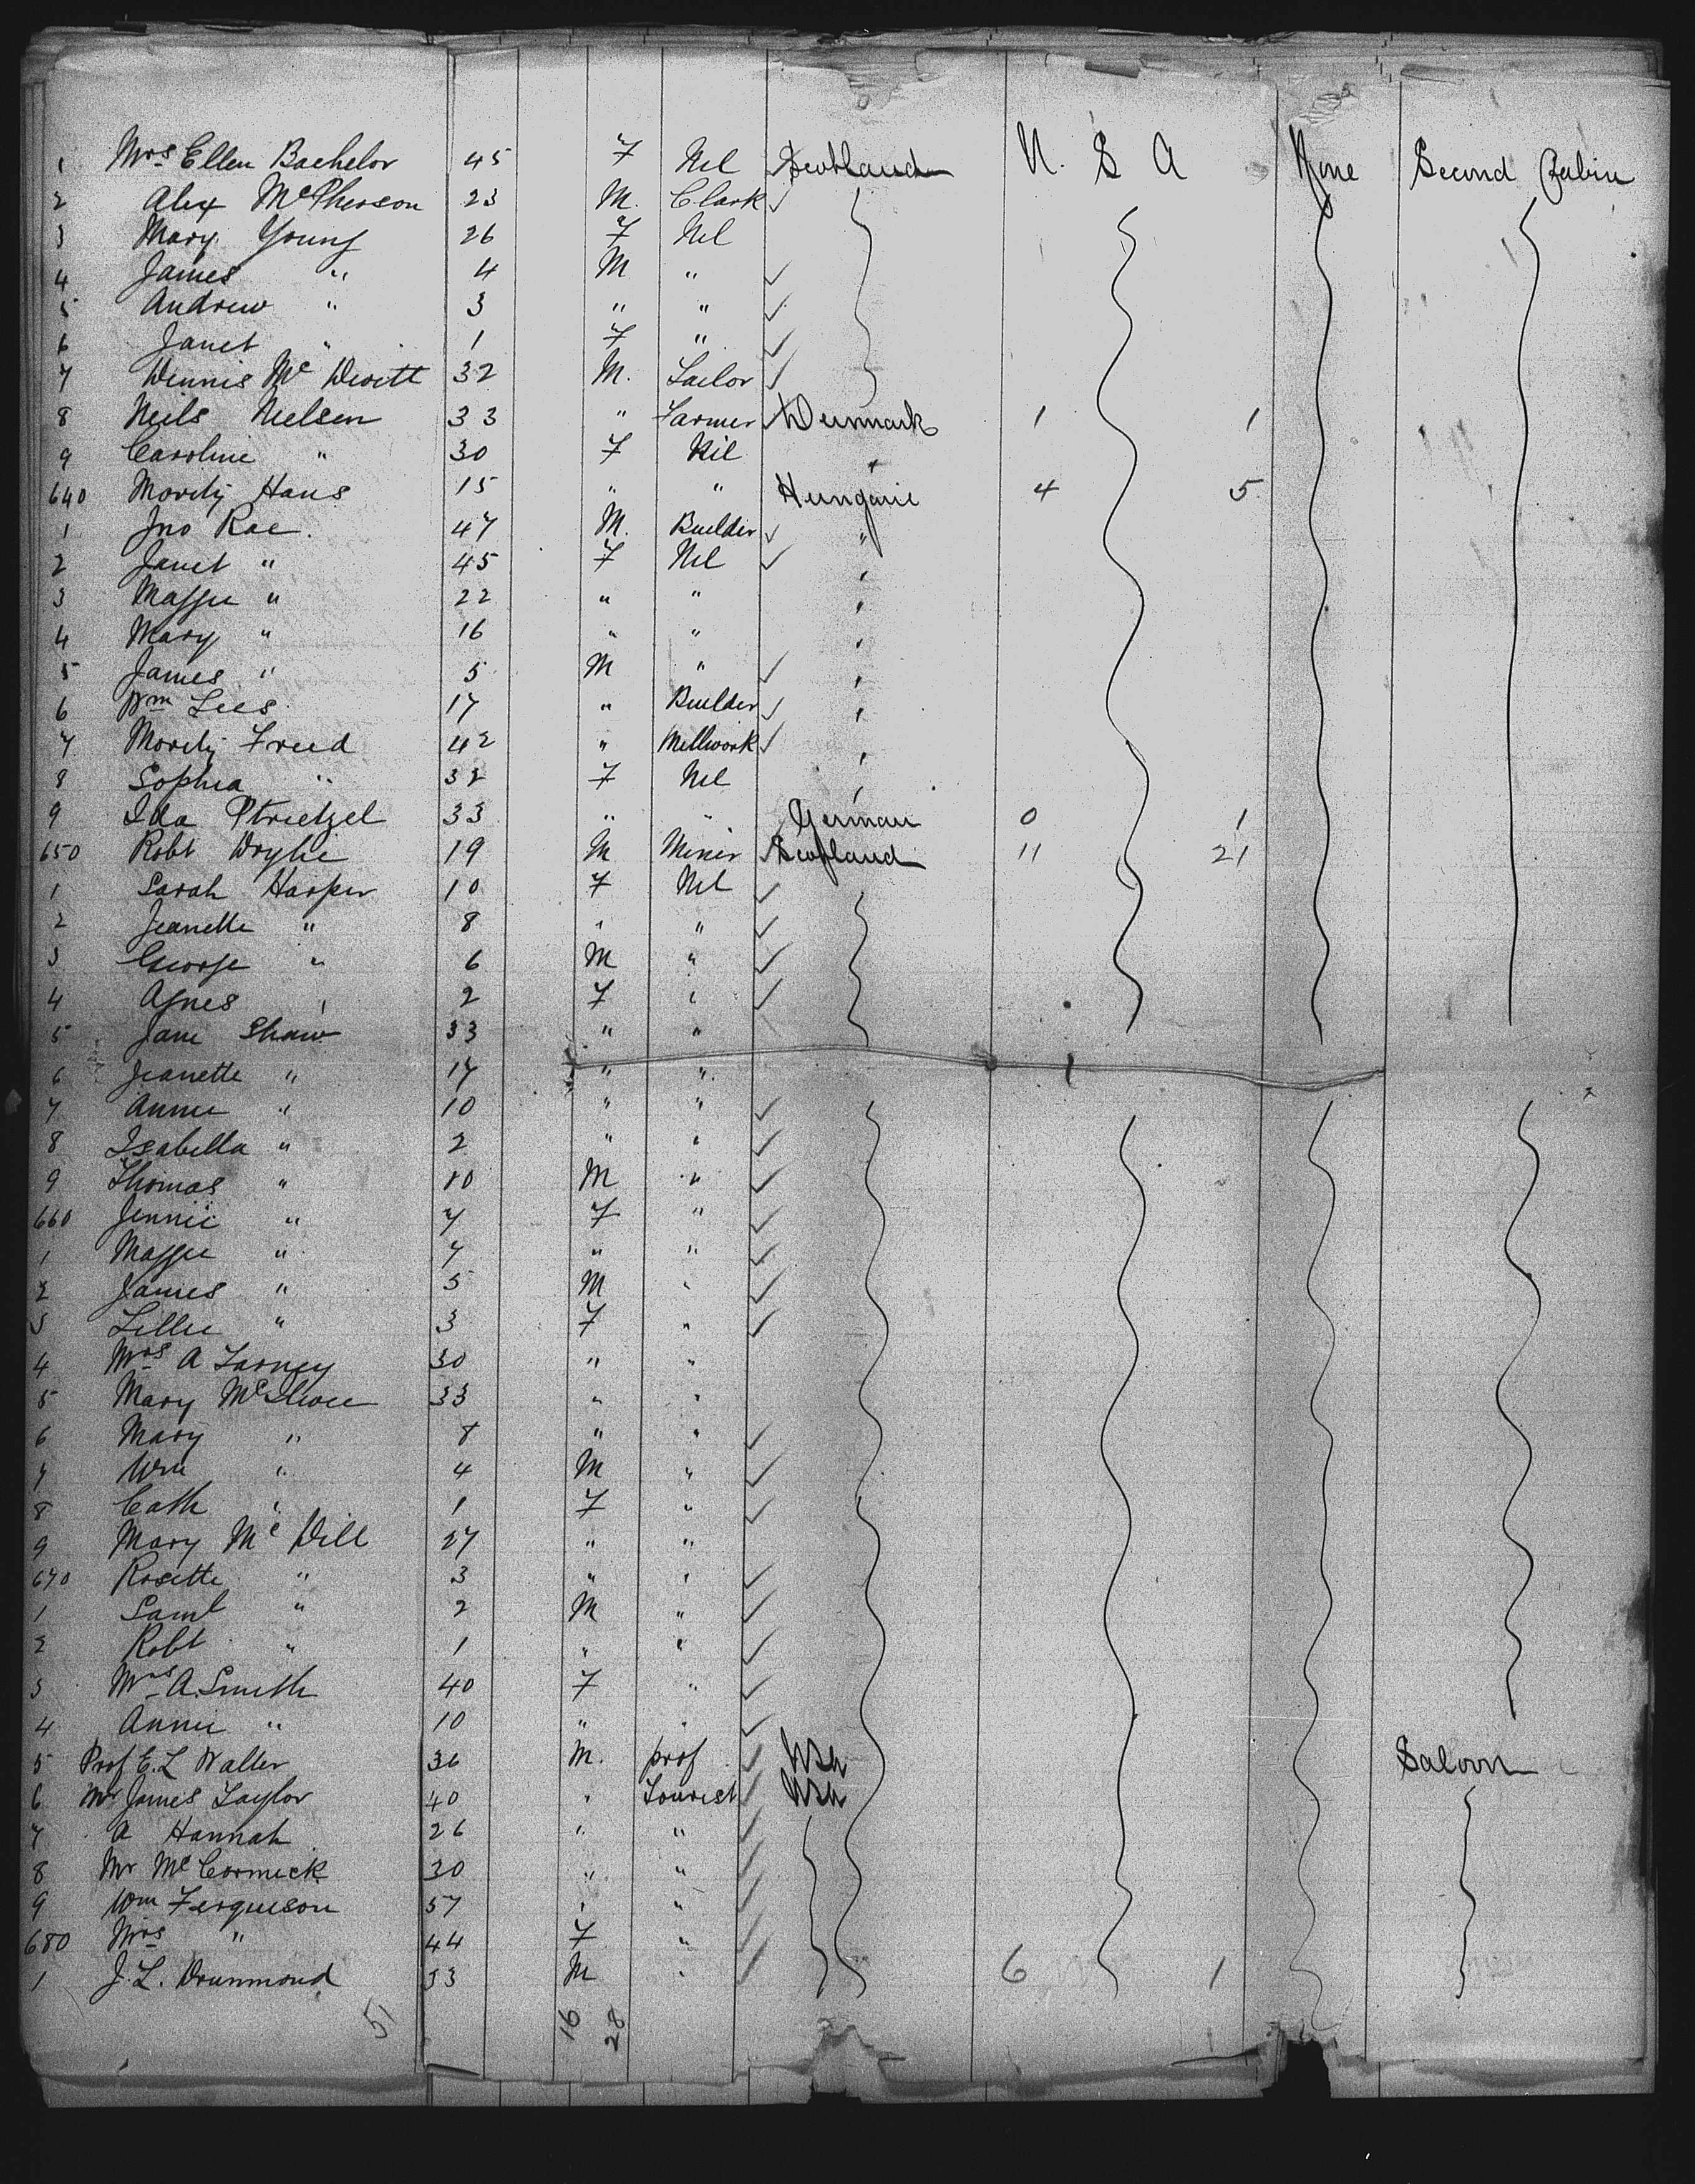 1 Mrs Ellen Bachelor 45 F Nil Scotland U. S A None Second Cabin
2 Alex McPherson 23 M. Clark
3 Mary Young 26 F Nil
4 James " 4 M "
5 Andrew " 3 " "
6 Janet " 1 F "
7 Dennis McDevitt 32 M. Tailor
8 Neils Nielsen 33 " Farmer Denmark 1 1
9 Caroline " 30 F Nil "
640 Moritz Hans 15 " " Hungarie 4 5
1 Jno Rae 47 M. Builder "
2 Janet " 45 F Nil "
3 Maggie " 22 " " "
4 Mary " 16 " " "
5 James " 5 M " "
6 Wm Lees 17 " Builder "
7 Moritz Freed 42 " Millwork "
8 Sophia " 32 F Nil "
9 Ida Strietzel 33 " " German 0 1
650 Robt Wyllie 19 M Miner Scotland 11 21
1 Sarah Harper 10 F Nil
2 Jeanette " 8 " "
3 George " 6 M "
4 Agnes " 2 F "
5 Jane Shaw 33 " "
6 Jeanette " 17 " "
7 Annie " 10 " "
8 Isabella " 2 " "
9 Thomas " 10 M "
660 Jennie " 7 F "
1 Maggie " 7 " "
2 James " 5 M "
3 Lillie " 3 F "
4 Mrs A 30 " "
5 Mary 33 " "
6 Mary " 8 " "
7 Wm " 4 M "
8 Cath " 1 F "
9 Mary McDill 27 " "
670 Rosette " 3 " "
1 Saml " 2 M "
2 Robt " 1 " "
3 Mrs A. Smith 40 F "
4 Annie " 10 " "
5 Prof E. L Walter 36 M. prof USA Saloon
6 Mr James Taylor 40 " Tourist USA
7 A Hannah 26 " "
8 Mr McCormick 30 " "
9 Wm Ferguison 57 " "
680 Mrs " 44 F "
1 J. L. Drummond 33 M " 6 1
51 16 28